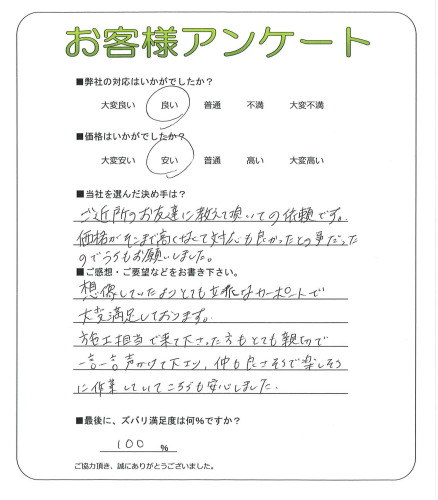 お客様アンケート
■弊社の対応はいかがでしたか?
大変良い 良い 普通 不満 大変不満
■価格はいかがでしたか?
大変安い 安い 普通 高い 大変高い
■当社を選んだ決め手は?
ご近所のお友達に教えて頂いての依頼です。
価格がそこまで高くなくて対応も良かったとの事だった
のでうちもお願いしました。
■ご感想・ご要望などをお書き下さい。
想像していたよりとても立派なカーポートで
大変満足しております。
施工担当で来て下さった方もとても親切で
一言一言声かけて下さり、仲も良さそうで楽しそう
に作業していてこちらも安心しました.
■最後に、ズバリ満足度は何%ですか?
100 %
ご協力頂き、誠にありがとうございました。